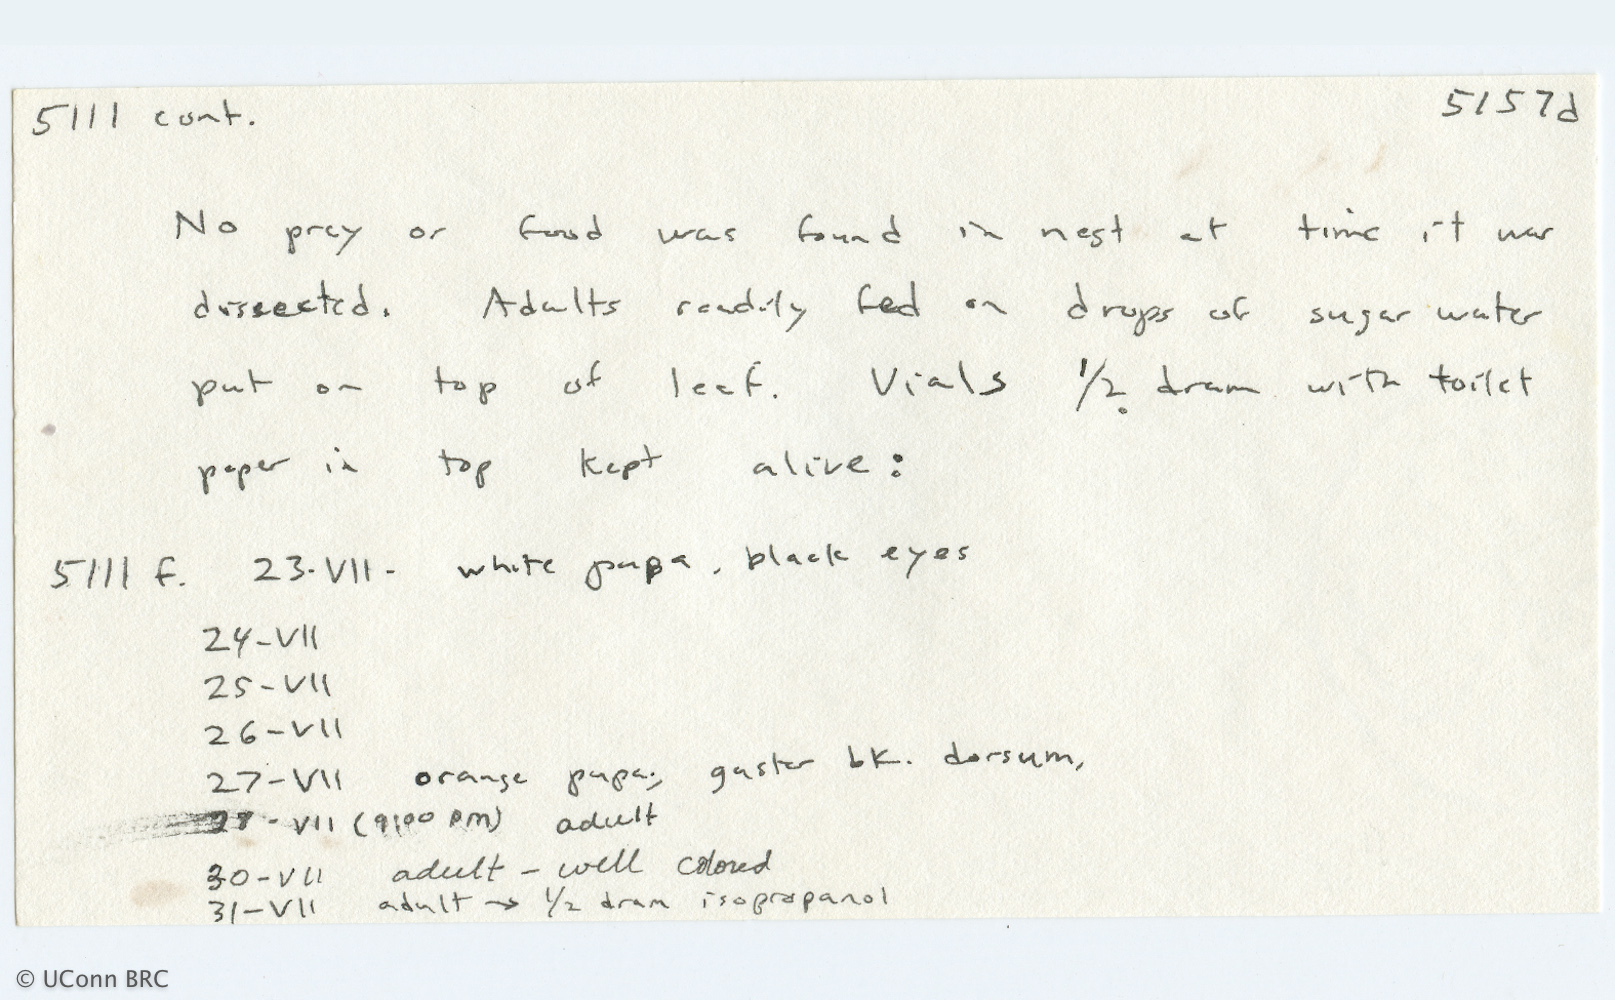 5111 cont.
5157d
No prey or food was found in nest at time it was
dissected. Adults readily fed on drops of sugar water
put on top of leaf. Vials 1/2 dram with toilet
paper in top kept alive:
5111 f. 23-VII- white pupa, black eyes
24-VII
25-VII
26-VII
27-VII orange pupa; gaster bk. dorsum,
VII (9:00 pm) adult
30-VII adult - well colored
31-VII adult → 1/2 dram isopropanol
© UConn BRC